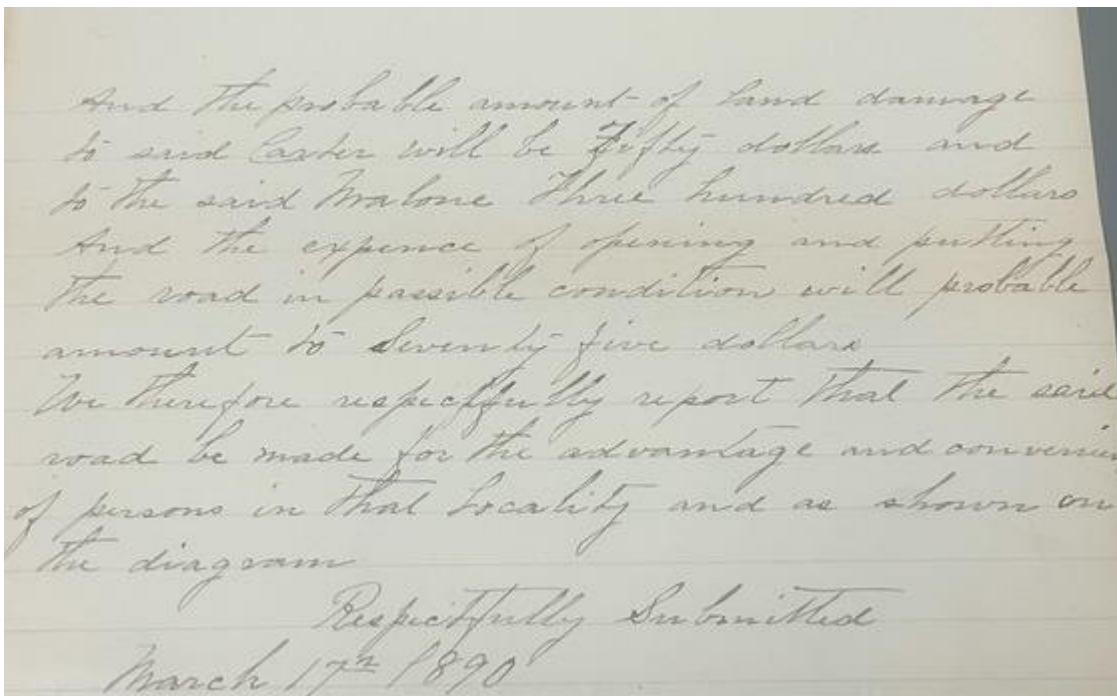 And the probable amount of land damage
to said Carter will be Fifty dollars and
to the said Malone Three hundred dollars
And the expence of opening and putting
the road in passible condition will probable
amount to Seventy five dollars
We therefore respectfully report that the said
road be made for the advantage and convenien
of persons in that Locality and as shown on
the diagram
Respectfully Submitted
March 17th 1890